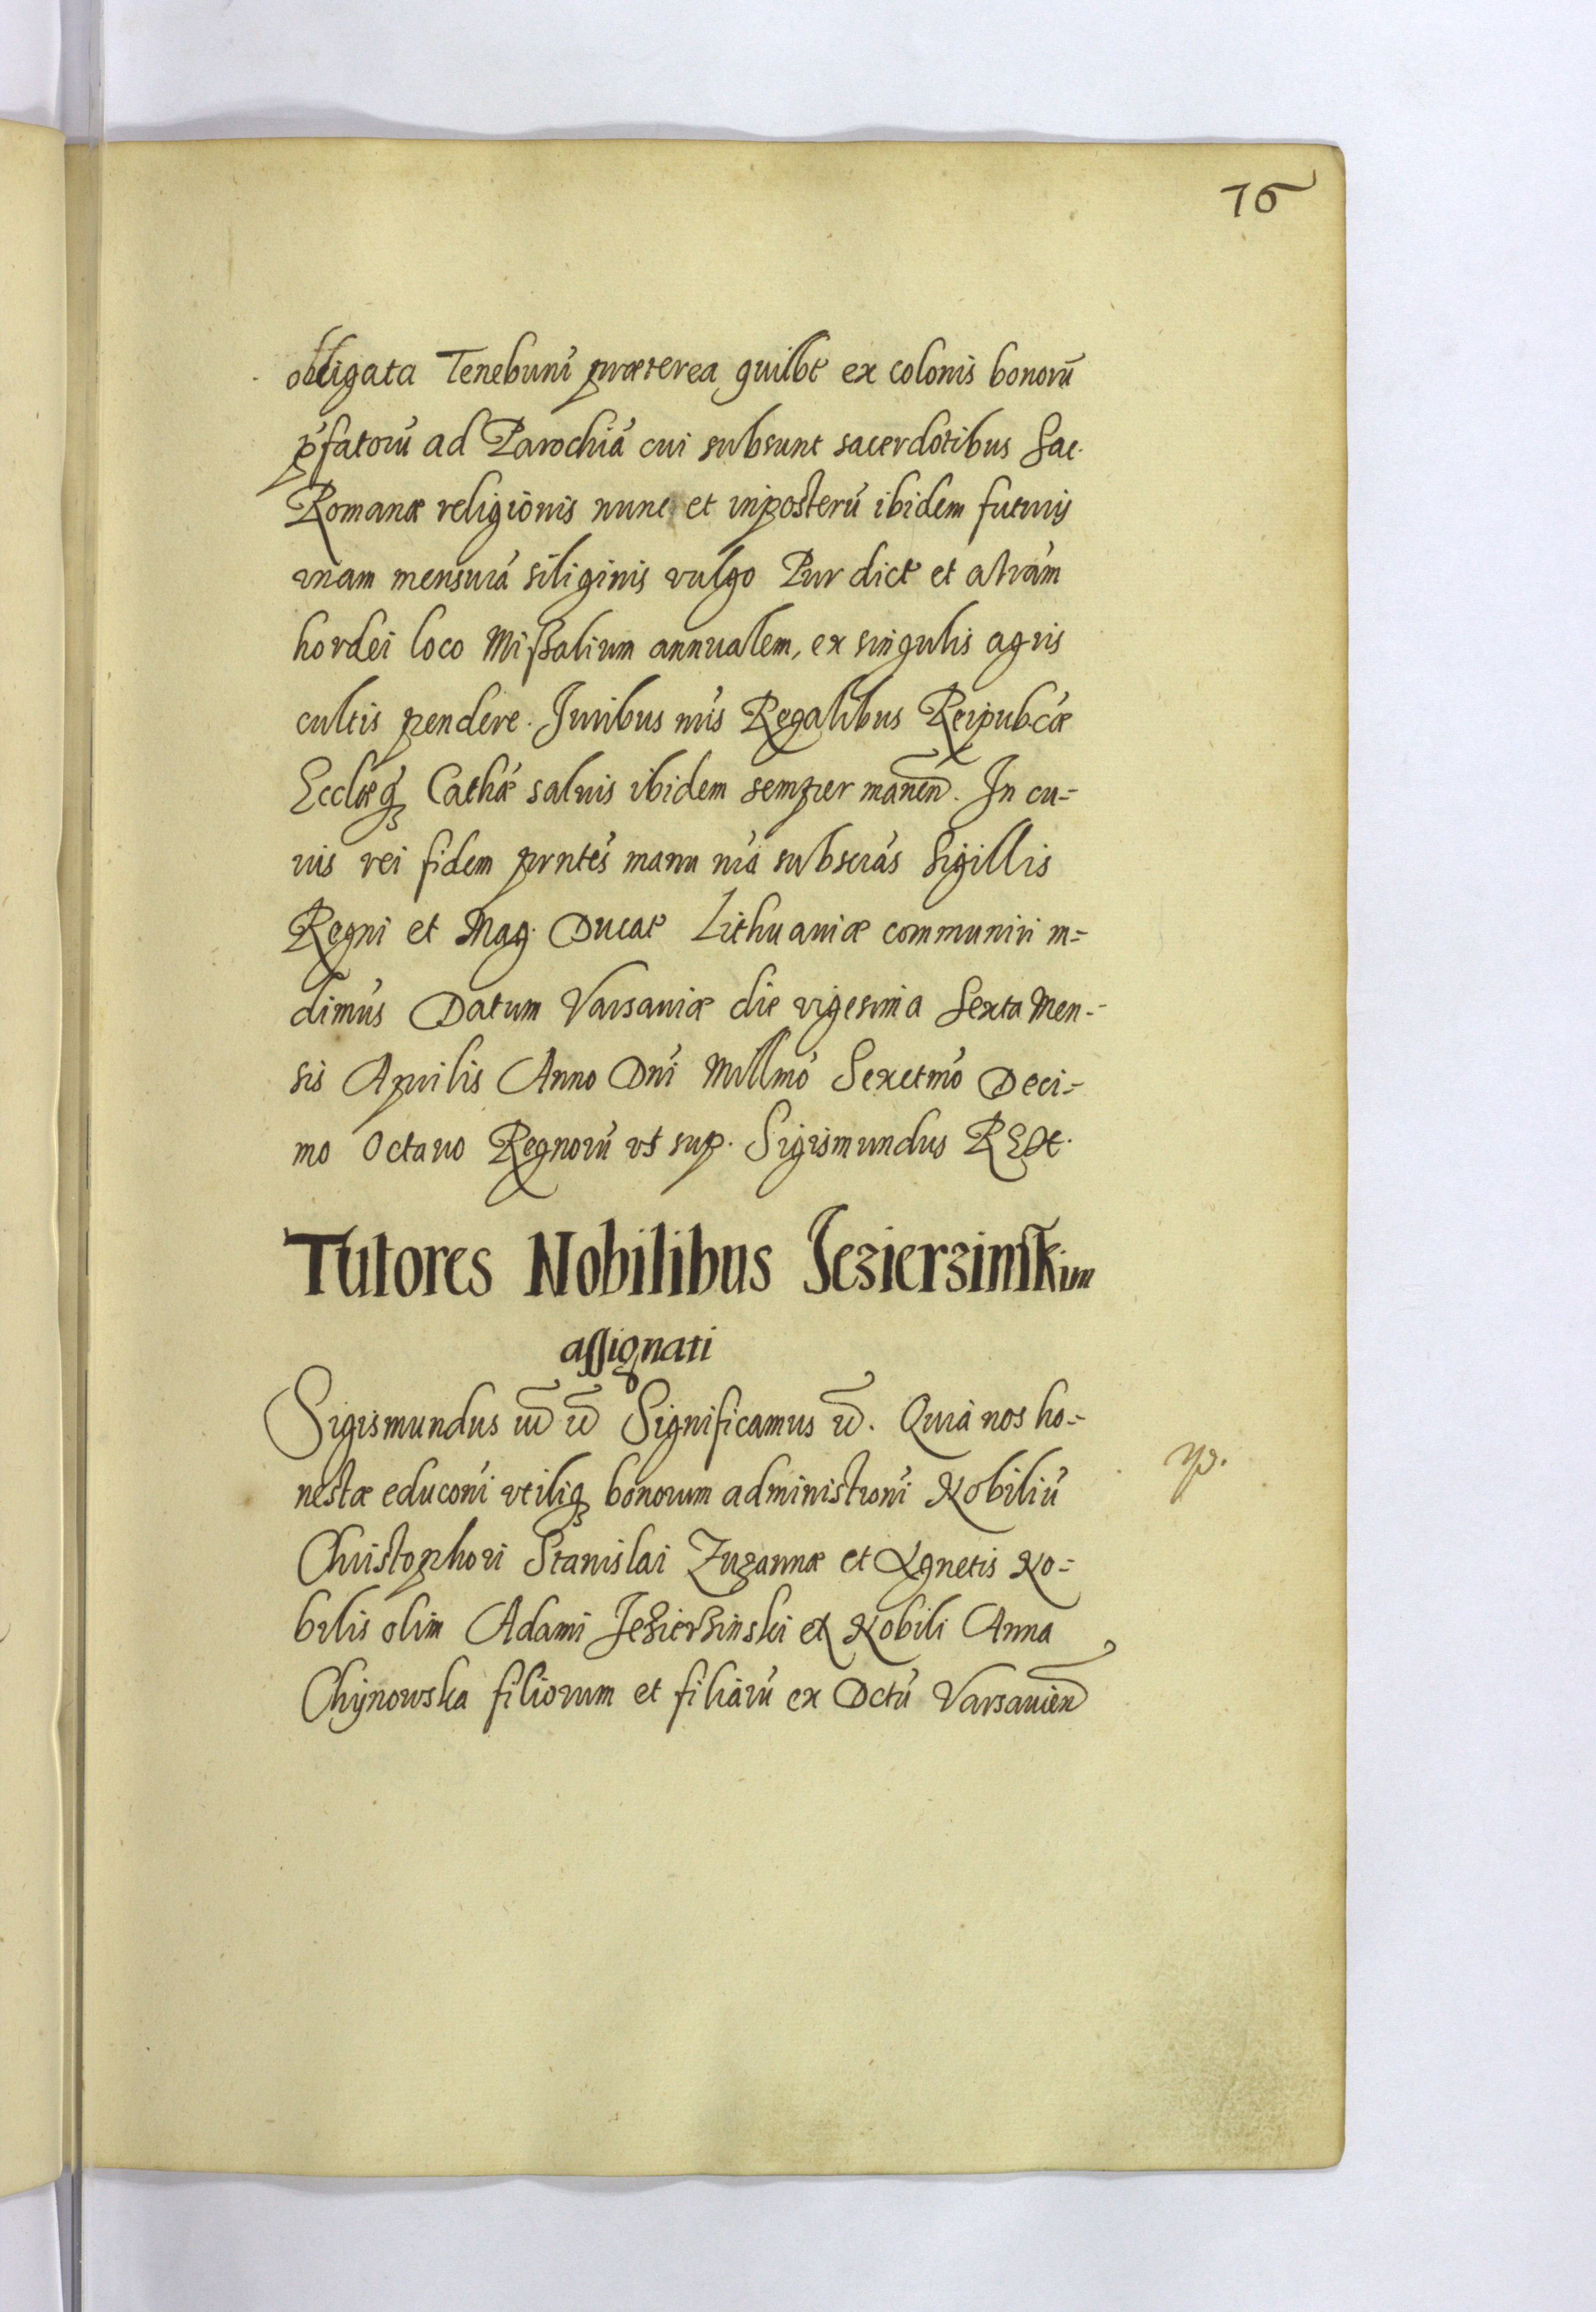 76
obligata Tenebunt́ præterea quilbt ex colonis bonorū
p̄fatorū ad Parochiā cui subsunt sacerdotibus Sac.
Romanæ religionis nunc et inposterū ibidem futuris
unam mensurā siliginis vulgo Pur dict et alrám
hordei loco Mißalium annualem, ex singulis agris
cultis pendere. Juribus nr̄is Regalibus Reipubćæ
Ecclæq́ʒ Cathæ saluis ibidem semper manen̄. In cu=
ius rei fidem prnteś manu nrā subscrás Sigillis
Regni et Mag. Ducat Lithuaniæ communiri m=
dimuś Datum Varsauiæ die vigesima Sexta Men-
sis Aprilis Anno Dnī Millmó Sexctmó Deci=
mo Octauo Regnorū vt sup. Sigismundus REX.
Tutores Nobilibus Jezierzinskim
assignati
Sigismundus iii etc Significamus etc. Quia nos ho=
nestæ educoni vtiliqʒ bonorum administroni Nobiliū
Christophori Stanislai Zuzannæ et Agnetis No=
bilis olim Adami Jezierzinski ex Nobili Anna
Chynowska filiorum et filiarū ex Dctū Varsauien